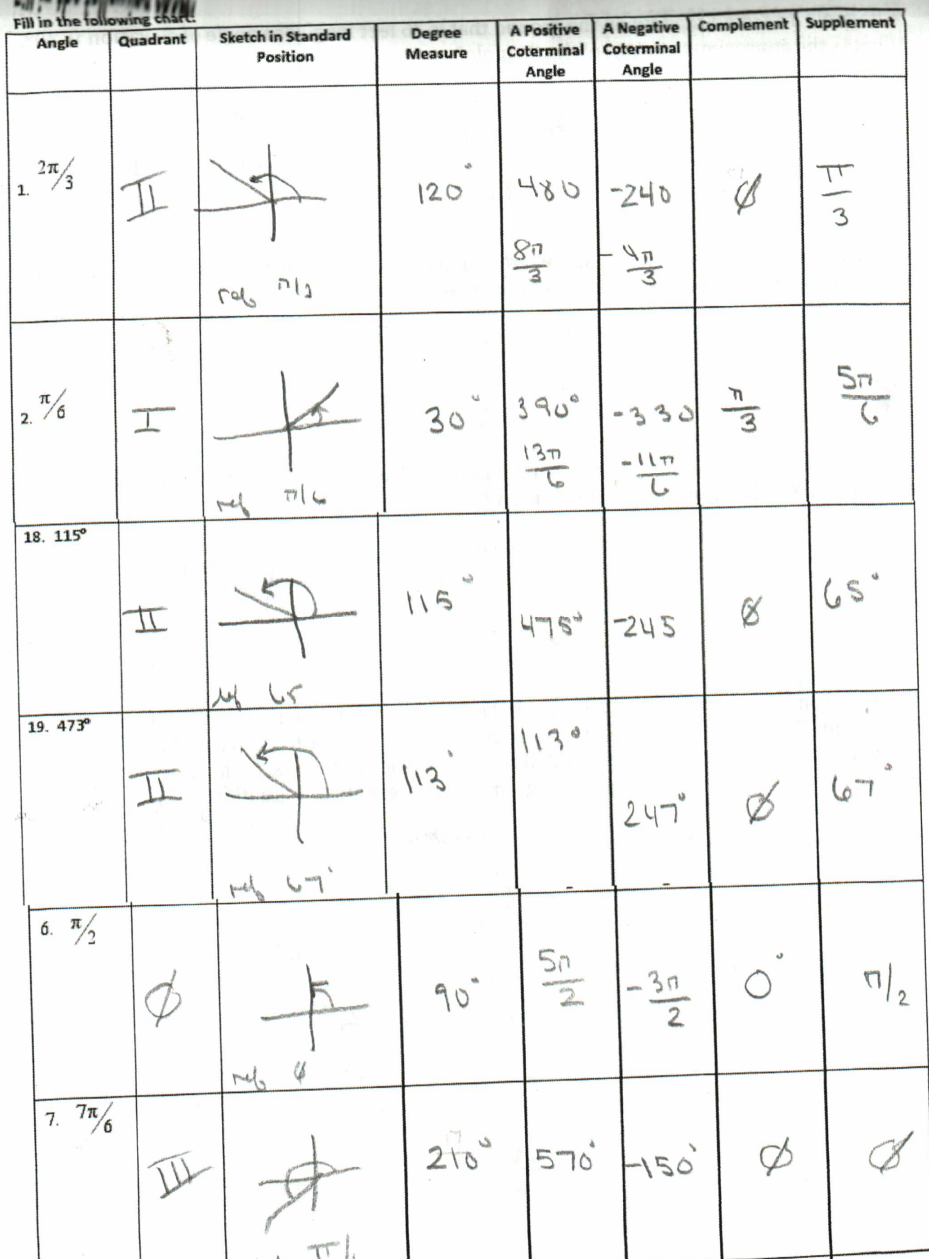 Fill in the following chart.
Angle Quadrant Sketch in Standard Position Degree Measure A Positive Coterminal Angle A Negative Coterminal Angle Complement Supplement
1. 2π/3 II 120° 480 -240 ∅ π/3
8π/3 -4π/3
ref
2. π/6 I 30° 390° -330 π/3 5π/6
13π/6 -11π/6
ref π/6
18. 115°
II 115° 475° -245 ∅ 65°
ref 65
19. 473°
II 113° 113° 247° ∅ 67°
ref 67°
6. π/2
∅ 90° 5π/2 -3π/2 0° π/2
ref ∅
7. 7π/6
III 210° 570° -150° ∅ ∅